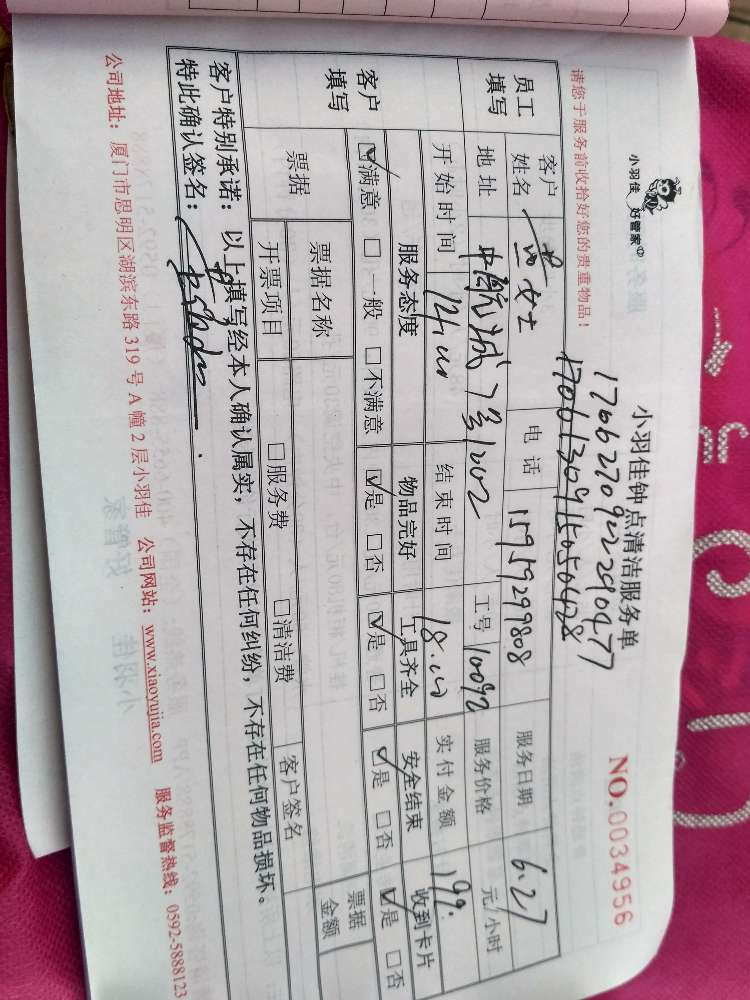 小羽佳 好管家
小羽佳钟点清洁服务单
NO.0034956
17062709222290477
17061309115050428
请您于服务前收拾好您的贵重物品!
员工填写
客户姓名 女士 电话 15959299808 服务日期 6.27
地址 中航城 1002 工号 10092 服务价格 元/小时
开始时间 结束时间 实付金额 199.
客户填写
服务态度 物品完好 工具齐全 安全结束 收到卡片
☑满意 □一般 □不满意 ☑是 □否 ☑是 □否 ☑是 □否 ☑是 □否
票据 票据名称 客户签名 票据金额
开票项目 □服务费 □清洁费
客户特别承诺:以上填写经本人确认属实,不存在任何纠纷,不存在任何物品损坏。
特此确认签名:
公司地址:厦门市思明区湖滨东路 319 号 A 幢 2 层小羽佳 公司网站:www.xiaoyujia.com 服务监督热线:0592-5888123